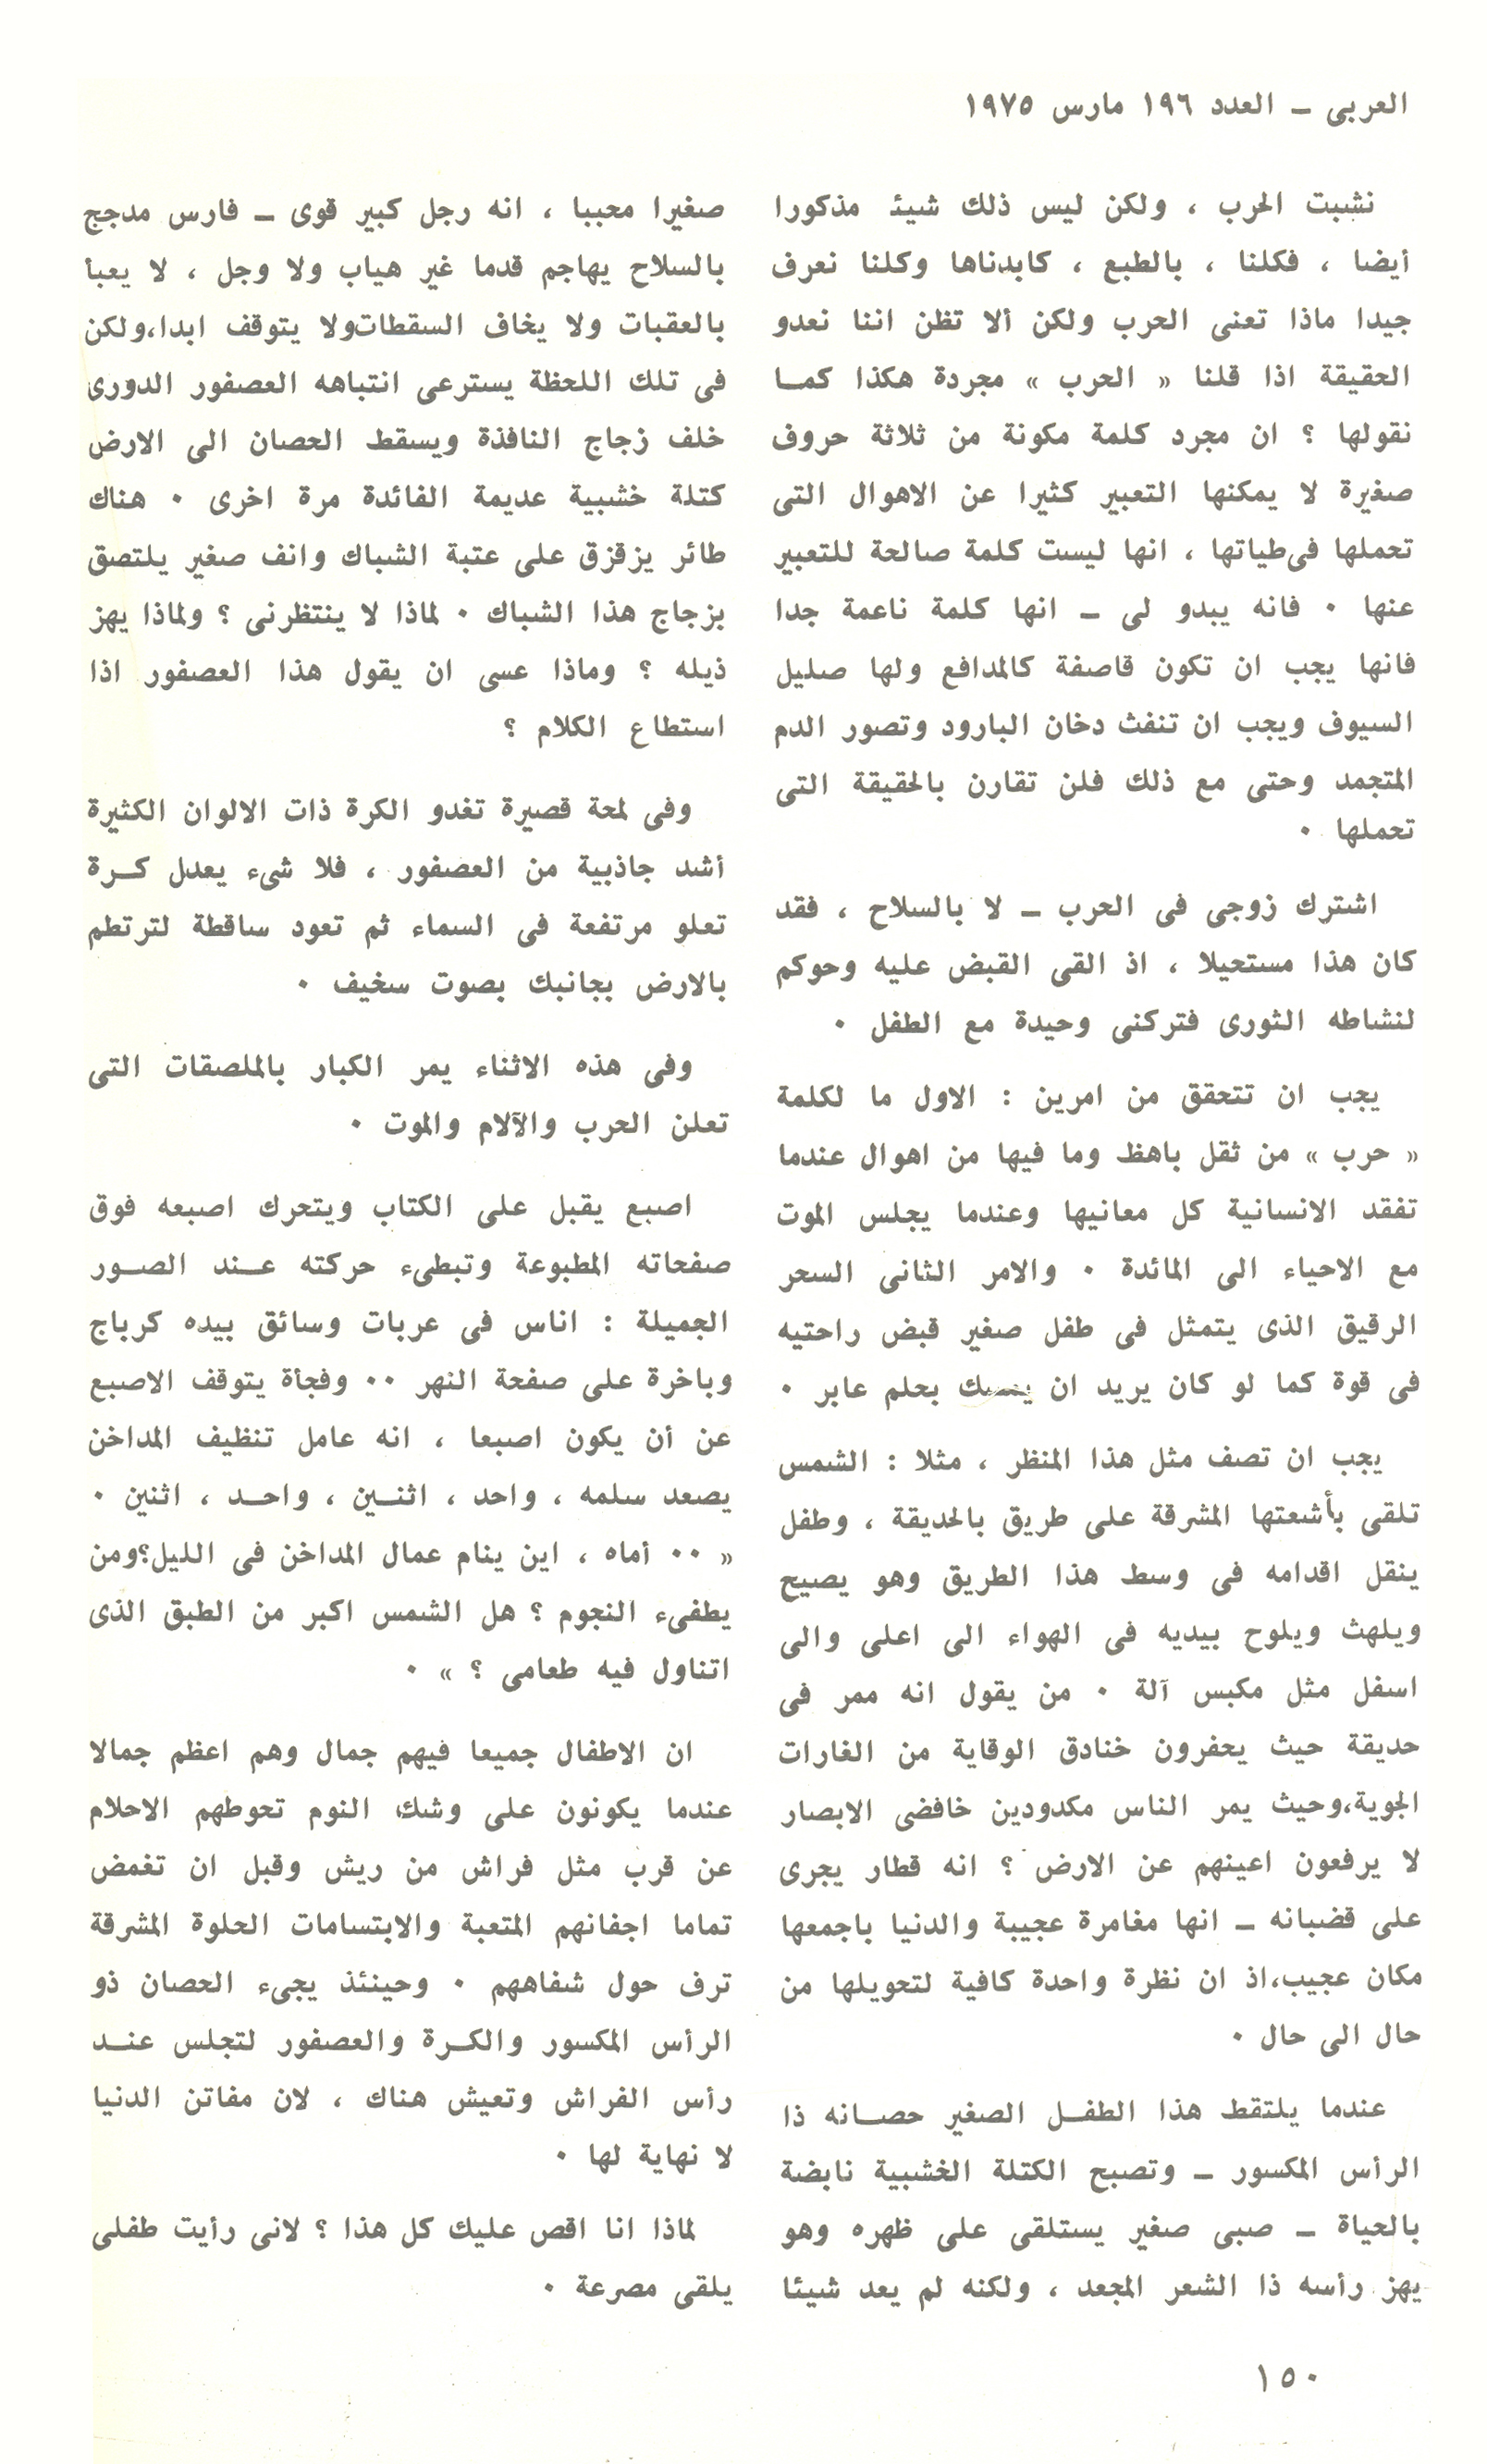 العربى ـ العدد ١٩٦ مارس ١٩٧٥
نشبت الحرب ، ولكن ليس ذلك شيئ مذكورا
أيضا ، فكلنا ، بالطبع ، كابدناها وكلنا نعرف
جيدا ماذا تعنى الحرب ولكن ألا تظن اننا نعدو
الحقيقة اذا قلنا « الحرب » مجردة هكذا كمـا
نقولها ؟ ان مجرد كلمة مكونة من ثلاثة حروف
صغيرة لا يمكنها التعبير كثيرا عن الاهوال التى
تحملها فى طياتها ، انها ليست كلمة صالحة للتعبير
عنها ٠ فانه يبدو لى ـ انها كلمة ناعمة جدا
فانها يجب ان تكون قاصفة كالمدافع ولها صليل
السيوف ويجب ان تنفث دخان البارود وتصور الدم
المتجمد وحتى مع ذلك فلن تقارن بالحقيقة التى
تحملها ٠
اشترك زوجى فى الحرب ـ لا بالسلاح ، فقد
كان هذا مستحيلا ، اذ القى القبض عليه وحوكم
لنشاطه الثورى فتركنى وحيدة مع الطفل ٠
يجب ان تتحقق من امرين : الاول ما لكلمة
« حرب » من ثقل باهظ وما فيها من اهوال عندما
تفقد الانسانية كل معانيها وعندما يجلس الموت
مع الاحياء الى المائدة ٠ والامر الثانى السحر
الرقيق الذى يتمثل فى طفل صغير قبض راحتيه
فى قوة كما لو كان يريد ان يمسك بحلم عابر ٠
يجب ان تصف مثل هذا المنظر ، مثلا : الشمس
تلقى بأشعتها المشرقة على طريق بالحديقة ، وطفل
ينقل اقدامه فى وسط هذا الطريق وهو يصيح
ويلهث ويلوح بيديه فى الهواء الى اعلى والى
اسفل مثل مكبس آلة ٠ من يقول انه ممر فى
حديقة حيث يحفرون خنادق الوقاية من الغارات
الجوية،وحيث يمر الناس مكدودين خافضى الابصار
لا يرفعون اعينهم عن الارض ؟ انه قطار يجرى
على قضبانه ـ انها مغامرة عجيبة والدنيا باجمعها
مكان عجيب،اذ ان نظرة واحدة كافية لتحويلها من
حال الى حال ٠
عندما يلتقط هذا الطفـل الصغير حصـانه ذا
الرأس المكسور ـ وتصبح الكتلة الخشبية نابضة
بالحياة ـ صبى صغير يستلقى على ظهره وهو
يهز رأسه ذا الشعر المجعد ، ولكنه لم يعد شيئا
صغيرا محببا ، انه رجل كبير قوى ـ فارس مدجج
بالسلاح يهاجم قدما غير هياب ولا وجل ، لا يعبأ
بالعقبات ولا يخاف السقطات ولا يتوقف ابدا،ولكن
فى تلك اللحظة يسترعى انتباهه العصفور الدورى
خلف زجاج النافذة ويسقط الحصان الى الارض
كتلة خشبية عديمة الفائدة مرة اخرى ٠ هناك
طائر يزقزق على عتبة الشباك وانف صغير يلتصق
بزجاج هذا الشباك ٠ لماذا لا ينتظرنى ؟ ولماذا يهز
ذيله ؟ وماذا عسى ان يقول هذا العصفور اذا
استطاع الكلام ؟
وفى لمحة قصيرة تغدو الكرة ذات الالوان الكثيرة
أشد جاذبية من العصفور ، فلا شىء يعدل كـرة
تعلو مرتفعة فى السماء ثم تعود ساقطة لترتطم
بالارض بجانبك بصوت سخيف ٠
وفى هذه الاثناء يمر الكبار بالملصقات التى
تعلن الحرب والآلام والموت ٠
اصبع يقبل على الكتاب ويتحرك اصبعه فوق
صفحاته المطبوعة وتبطىء حركته عـند الصـور
الجميلة : اناس فى عربات وسائق بيده كرباج
وباخرة على صفحة النهر ٠٠ وفجأة يتوقف الاصبع
عن أن يكون اصبعا ، انه عامل تنظيف المداخن
يصعد سلمه ، واحد ، اثنـين ، واحـد ، اثنين ٠
« ٠٠ أماه ، اين ينام عمال المداخن فى الليل؟ومن
يطفىء النجوم ؟ هل الشمس اكبر من الطبق الذى
اتناول فيه طعامى ؟ » ٠
ان الاطفال جميعا فيهم جمال وهم اعظم جمالا
عندما يكونون على وشك النوم تحوطهم الاحلام
عن قرب مثل فراش من ريش وقبل ان تغمض
تماما اجفانهم المتعبة والابتسامات الحلوة المشرقة
ترف حول شفاههم ٠ وحينئذ يجىء الحصان ذو
الرأس المكسور والكـرة والعصفور لتجلس عنـد
رأس الفراش وتعيش هناك ، لان مفاتن الدنيا
لا نهاية لها ٠
لماذا انا اقص عليك كل هذا ؟ لانى رأيت طفلى
يلقى مصرعة ٠
١٥٠